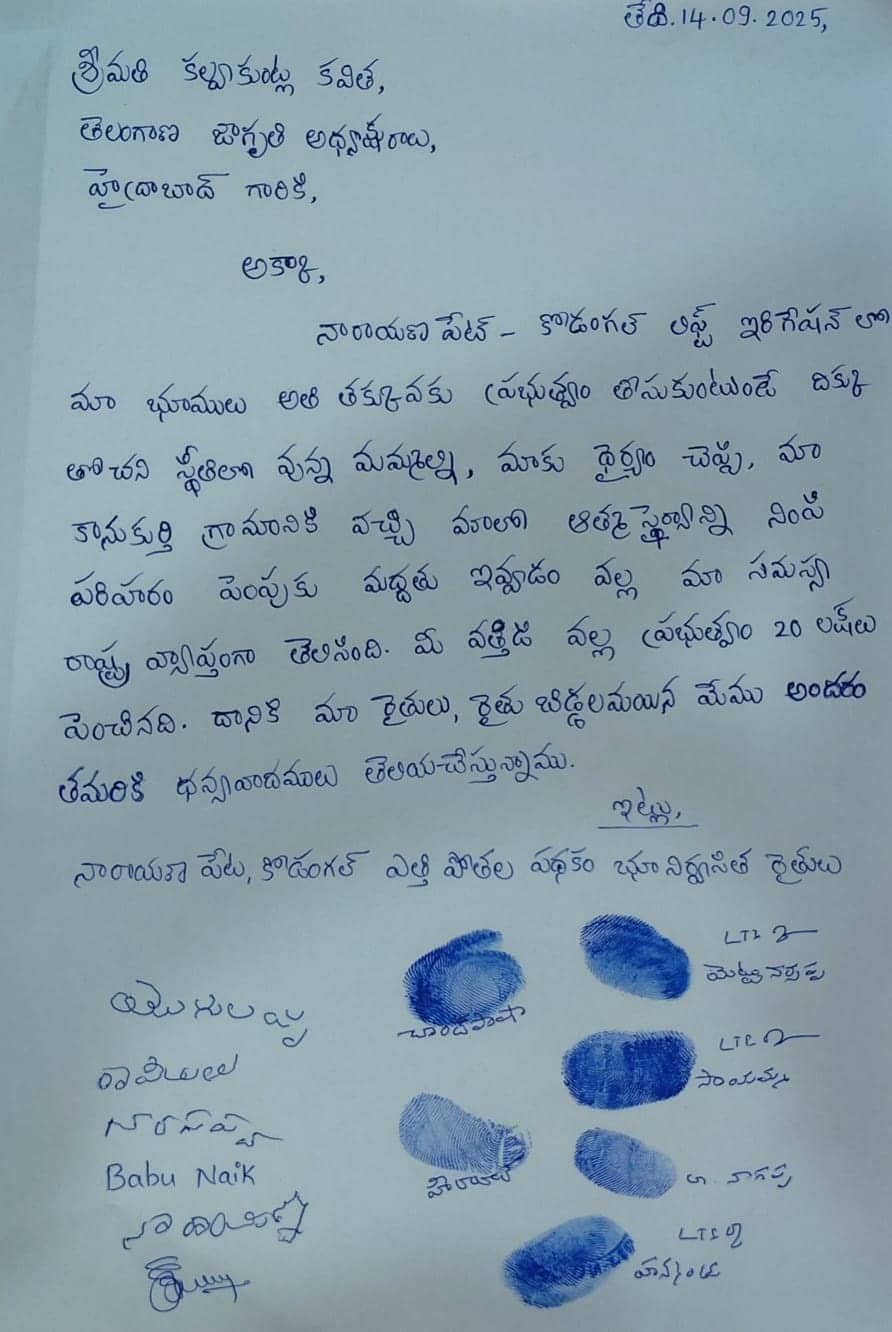 తేది. 14.09.2025,
శ్రీమతి కల్వాకుంట్ల కవిత,
తెలంగాణ జాగృతి అధ్యాక్షురాలు,
హైద్రాబాద్ గారికి,
అక్కా,
నారాయణ పేట్ - కొడంగల్ లిఫ్ట్ ఇరిగేషన్ లో
మా భూములు అతి తక్కువకు ప్రభుత్వం తీసుకుంటుండే దిక్కు
తోచని స్థితిలో వున్న మమ్మల్ని, మాకు ధైర్యం చెప్పి, మా
కానుకుర్తి గ్రామానికి వచ్చి మాలో ఆత్మస్థైర్యాన్ని నింపి
పరిహారం పెంపుకు మద్దతు ఇవ్వడం వల్ల మా సమస్యా
రాష్ట్ర వ్యాప్తంగా తెలిసింది. మీ వత్తిడి వల్ల ప్రభుత్వం 20 లక్షలు
పెంచినది. దానికి మా రైతులు, రైతు బిడ్డలమయిన మేము అందరం
తమరికి ధన్యవాదములు తెలియచేస్తున్నాము.
ఇట్లు,
నారాయణ పేట, కొడంగల్ ఎత్తి పోతల పథకం భూ నిర్వాసిత రైతులు
LTI
చాంద్ పాషా
LTI
సాయప్ప
Babu Naik
నాగప్ప
LTI